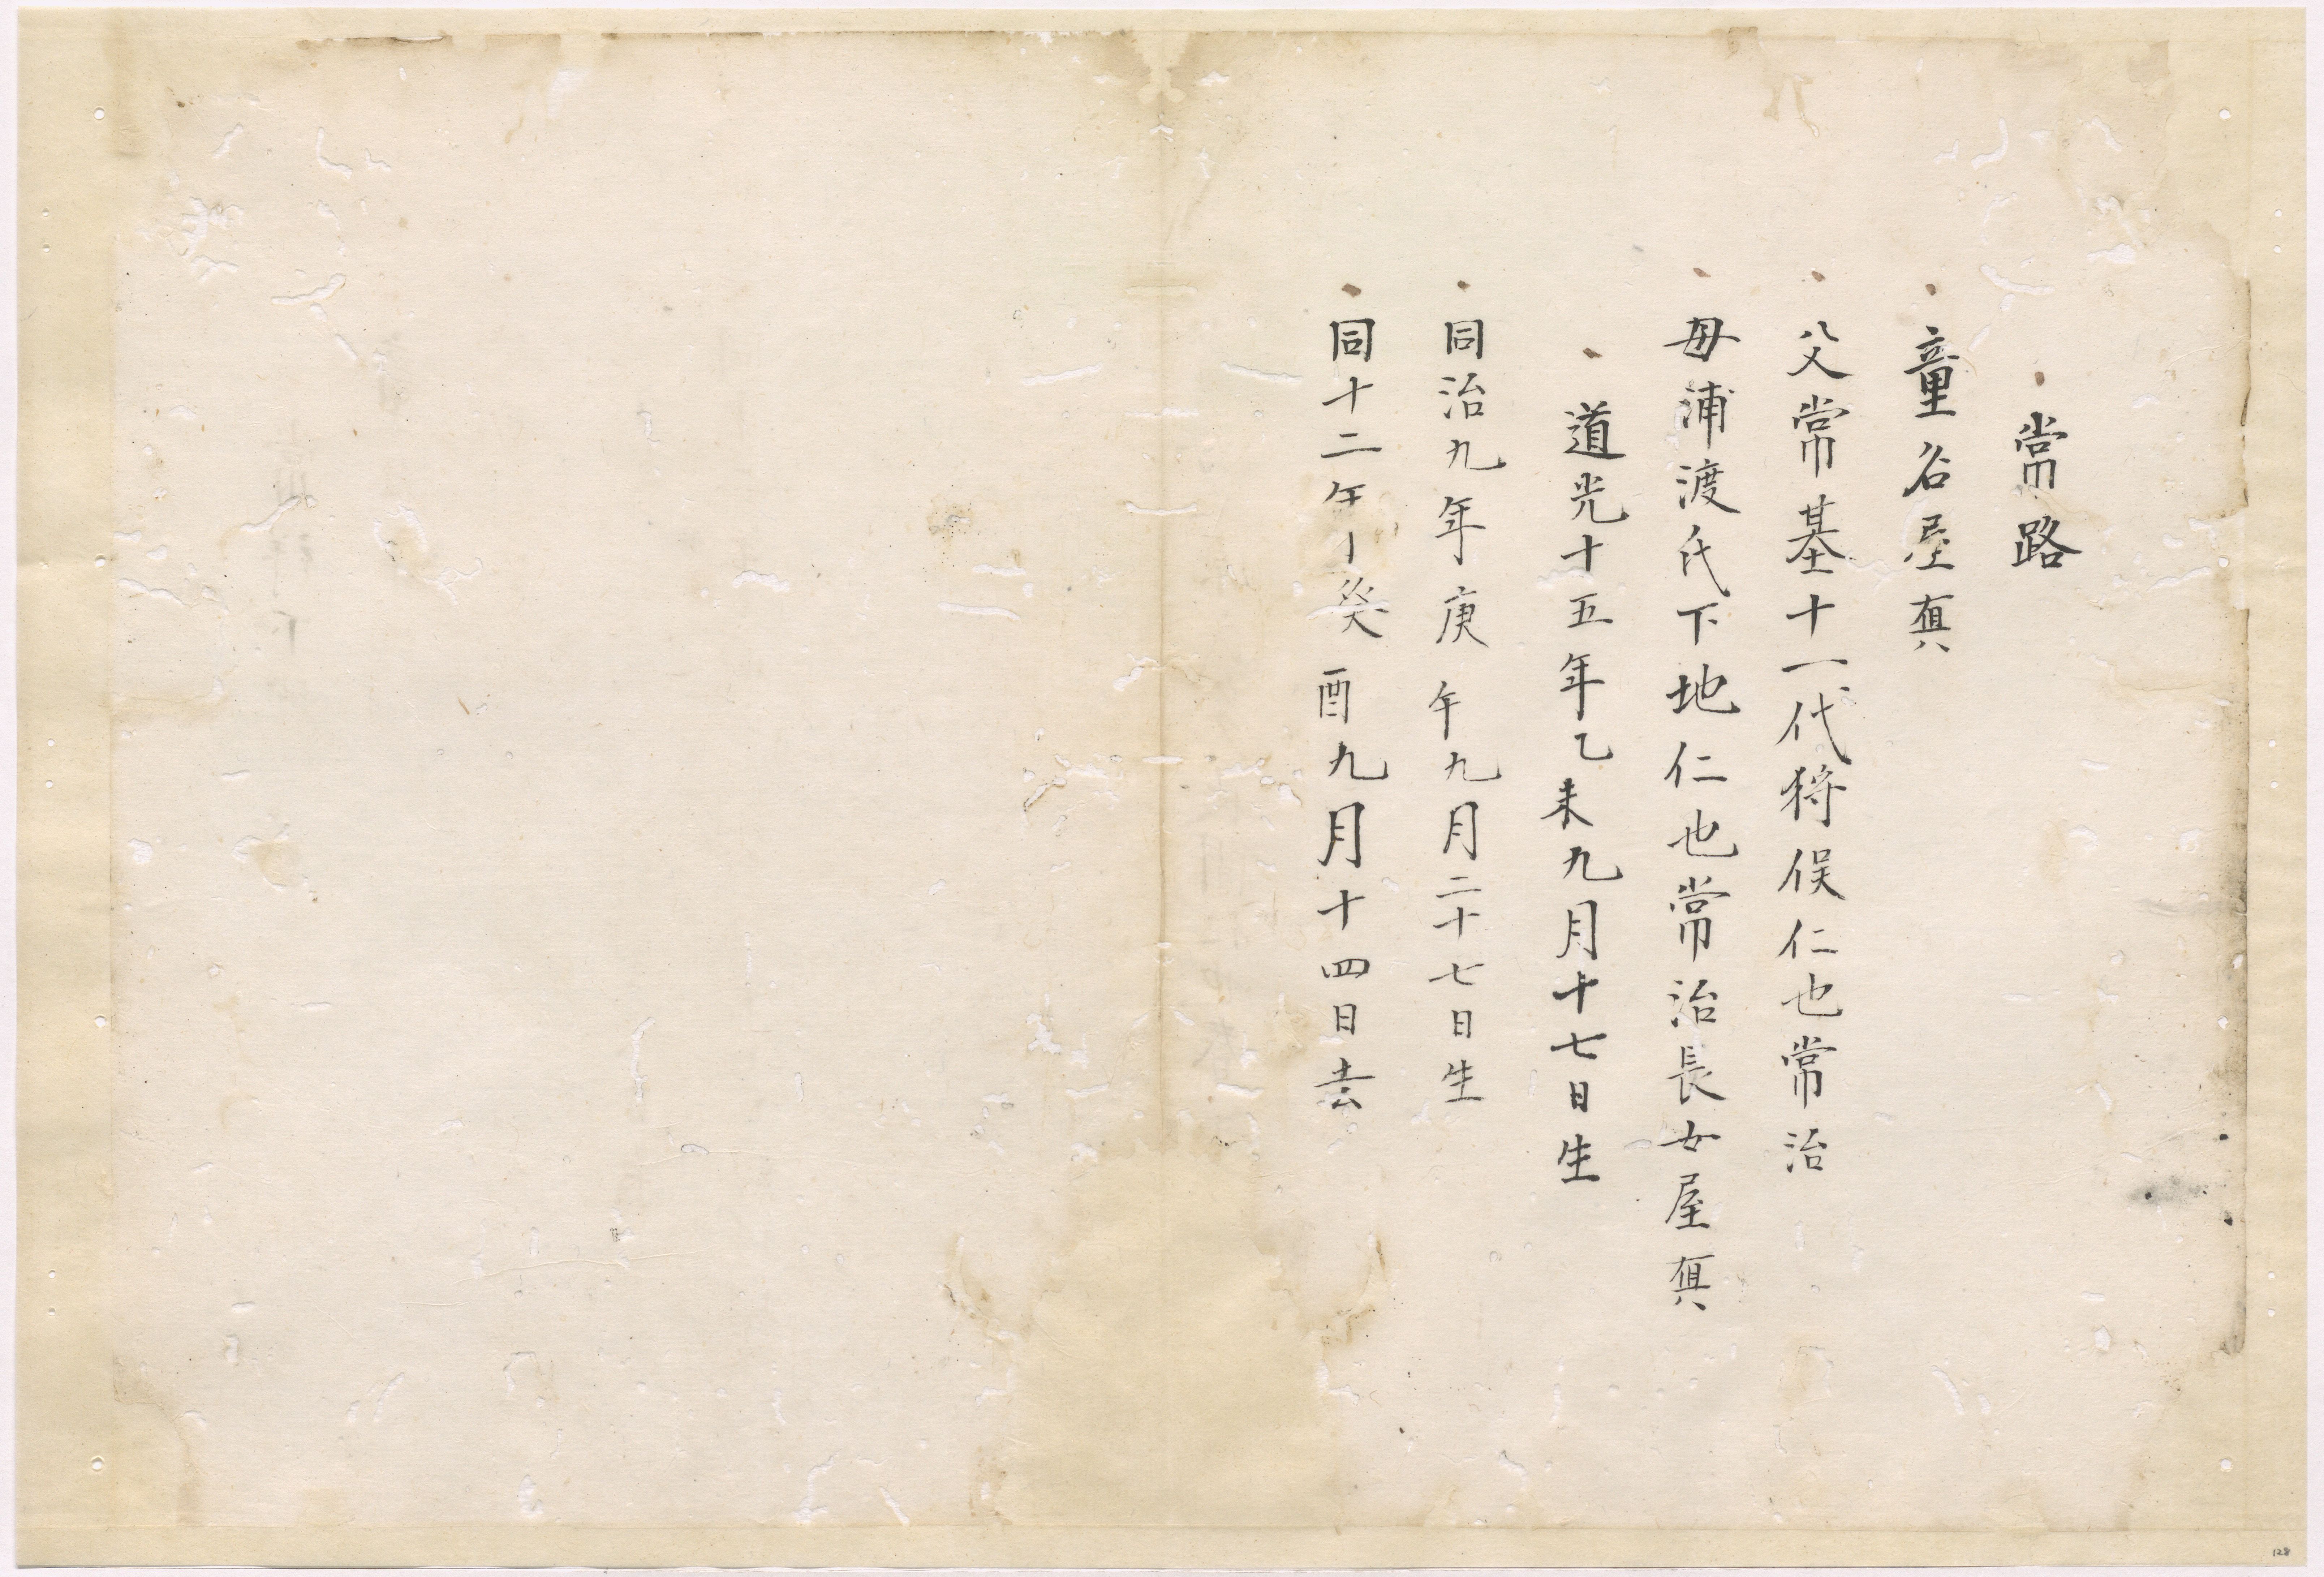 常路
童名屋真
父常基十一代将俣仁也常治
母浦渡氏下地仁也常治長女屋真
道光十五年乙未九月十七日生
同治九年庚午九月二十七日生
同十二年癸酉九月十四日去
128